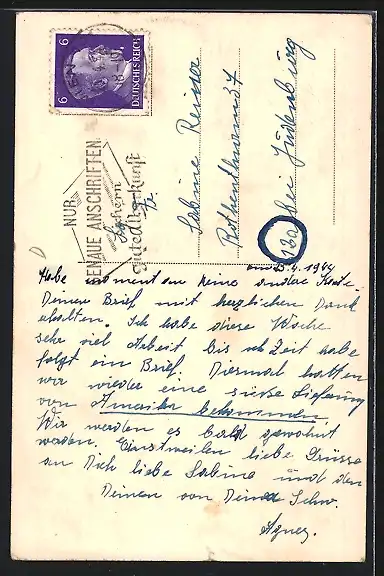 6
6
DEUTSCHES REICH
NUR
GENAUE ANSCHRIFTEN
sichern
gute
Sabine Reiser
Rothenthurm 37
bei Judenburg
12a
am 15.4. 1944
Habe momentan keine andere Karte.
Deinen Brief mit herzlichen Dank
erhalten. Ich habe diese Woche
sehr viel Arbeit bis ich Zeit habe
folgt ein Brief. Diesmal hatten
wir wieder eine süße Lieferung
von Amerika bekommen
Wir werden es bald gewohnt
werden. Einstweilen liebe Grüsse
an Dich liebe Sabine und den
Deinen von Deiner Schw.
Agnes.